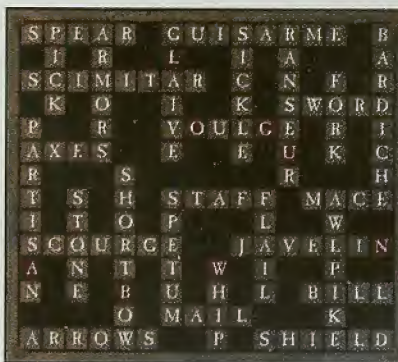 SPEAR GUISARME B
I R L I A A
SCIMITAR C N F R
K O I K SWORD
P R VOULGE R I
AXES E E U K C
R S R H
T S H STAFF MACE
I T O P L W
SCOURGE JAVELIN
A N T T W I P
N E B U H L BILL
O MAIL K
ARROWS P SHIELD